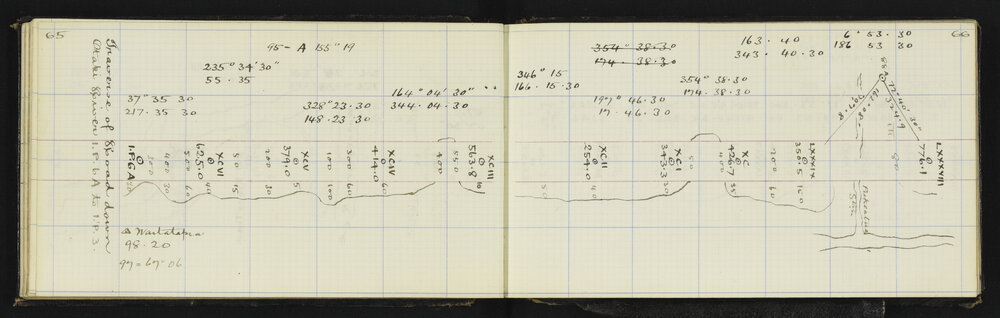 65
Traverse of Road down
Otaki River I.P.6.A to I.P.3.
95 - A 155° 19
235° 34' 30"
55 . 35
37° 35 30
217. 35 30
328° 23. 30
148. 23 30
164° 04' 30"
344. 04. 30
I.P.6.A
20
300
400 30
500 60
XCVI
625.0 40
50 15
200 30
XCV
379.0 5
100 100
300 60
XCIV
414.0 60
400
550
XCIII
56.8 10
△ Waitatapia
98. 20
97 = 67° 06
66
346° 15
166. 15. 30
354° 38. 30
174. 38. 30
197° 46. 30
17. 46. 30
354° 38. 30
174. 38. 30
163 . 40
343. 40. 30
6° 53. 30
186 53 30
72° 40' 30"
50
XCII
251.0 40
XCI
343.3 30
50
400 35
XC
426.7
200 60
LXXXIX
350.5 100
800
LXXXVIII
776.1